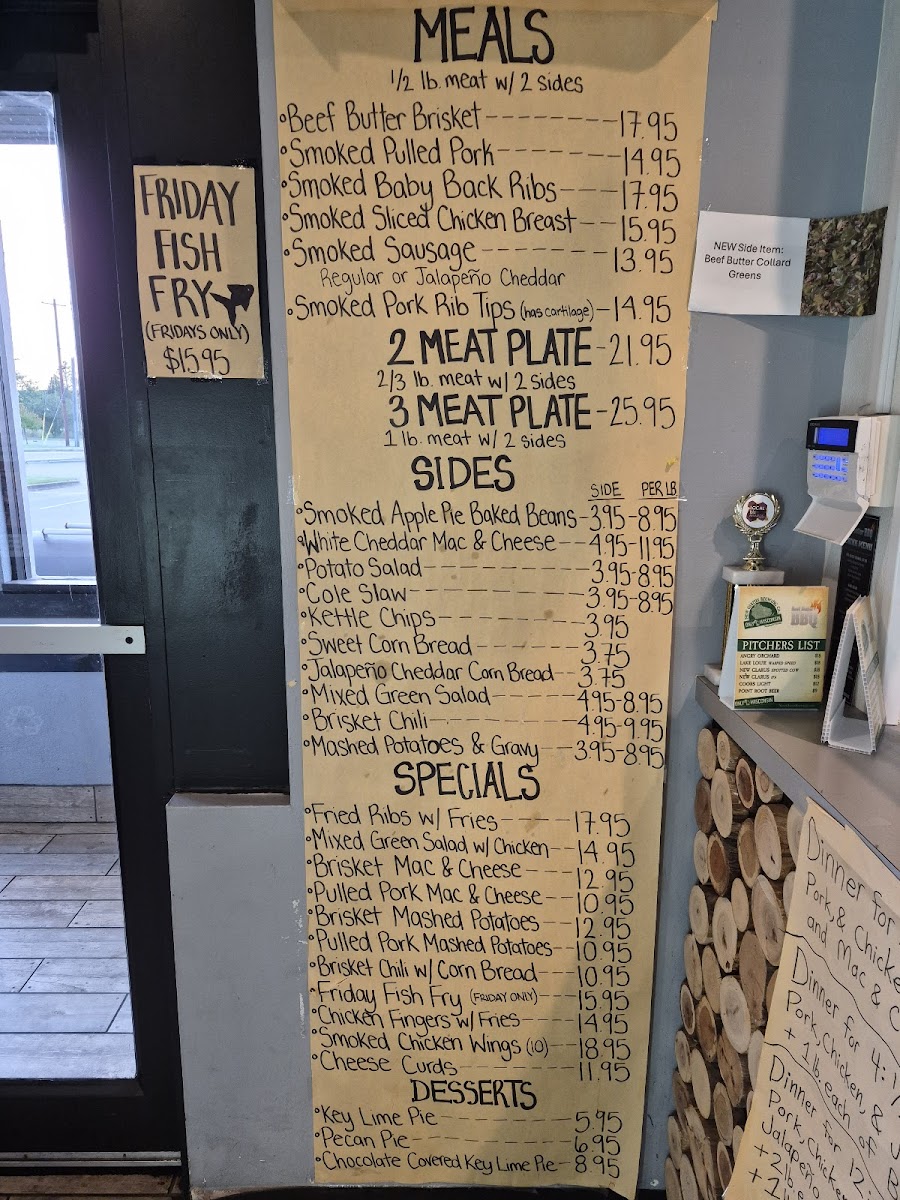 MEALS
1/2 lb. meat w/ 2 sides
•Beef Butter Brisket-------17.95
•Smoked Pulled Pork-------14.95
•Smoked Baby Back Ribs----17.95
•Smoked Sliced Chicken Breast---15.95
•Smoked Sausage--------13.95
Regular or Jalapeño Cheddar
•Smoked Pork Rib Tips (has cartilage)-14.95
2 MEAT PLATE-21.95
2/3 lb. meat w/ 2 sides
3 MEAT PLATE-25.95
1 lb. meat w/ 2 sides
SIDES
SIDE PER LB
•Smoked Apple Pie Baked Beans-3.95-8.95
•White Cheddar Mac & Cheese---4.95-11.95
•Potato Salad--------3.95-8.95
•Cole Slaw---------3.95-8.95
•Kettle Chips--------3.95
•Sweet Corn Bread------3.75
•Jalapeño Cheddar Corn Bread--3.75
•Mixed Green Salad-----4.95-8.95
•Brisket Chili--------4.95-9.95
•Mashed Potatoes & Gravy--3.95-8.95
SPECIALS
•Fried Ribs w/ Fries----17.95
•Mixed Green Salad w/ Chicken--14.95
•Brisket Mac & Cheese---12.95
•Pulled Pork Mac & Cheese--10.95
•Brisket Mashed Potatoes--12.95
•Pulled Pork Mashed Potatoes--10.95
•Brisket Chili w/ Corn Bread--10.95
•Friday Fish Fry (FRIDAY ONLY)---15.95
•Chicken Fingers w/ Fries---14.95
•Smoked Chicken Wings (10)--18.95
•Cheese Curds-------11.95
DESSERTS
•Key Lime Pie-------5.95
•Pecan Pie--------6.95
•Chocolate Covered Key Lime Pie-8.95
FRIDAY
FISH
FRY
(FRIDAYS ONLY)
$15.95
NEW Side Item:
Beef Butter Collard
Greens
BBQ
PITCHERS LIST
ANGRY ORCHARD
LAKE LOUIE WARPED SPEED
NEW GLARUS SPOTTED COW
NEW GLARUS IPA
COORS LIGHT
POINT ROOT BEER
Dinner for
Pork, & Chicke
and Mac &
Dinner for 4:
Pork, Chicken, &
+ 1 lb. each of
Dinner for 12
Pork, Chick
Jalapeño
+2 lb.